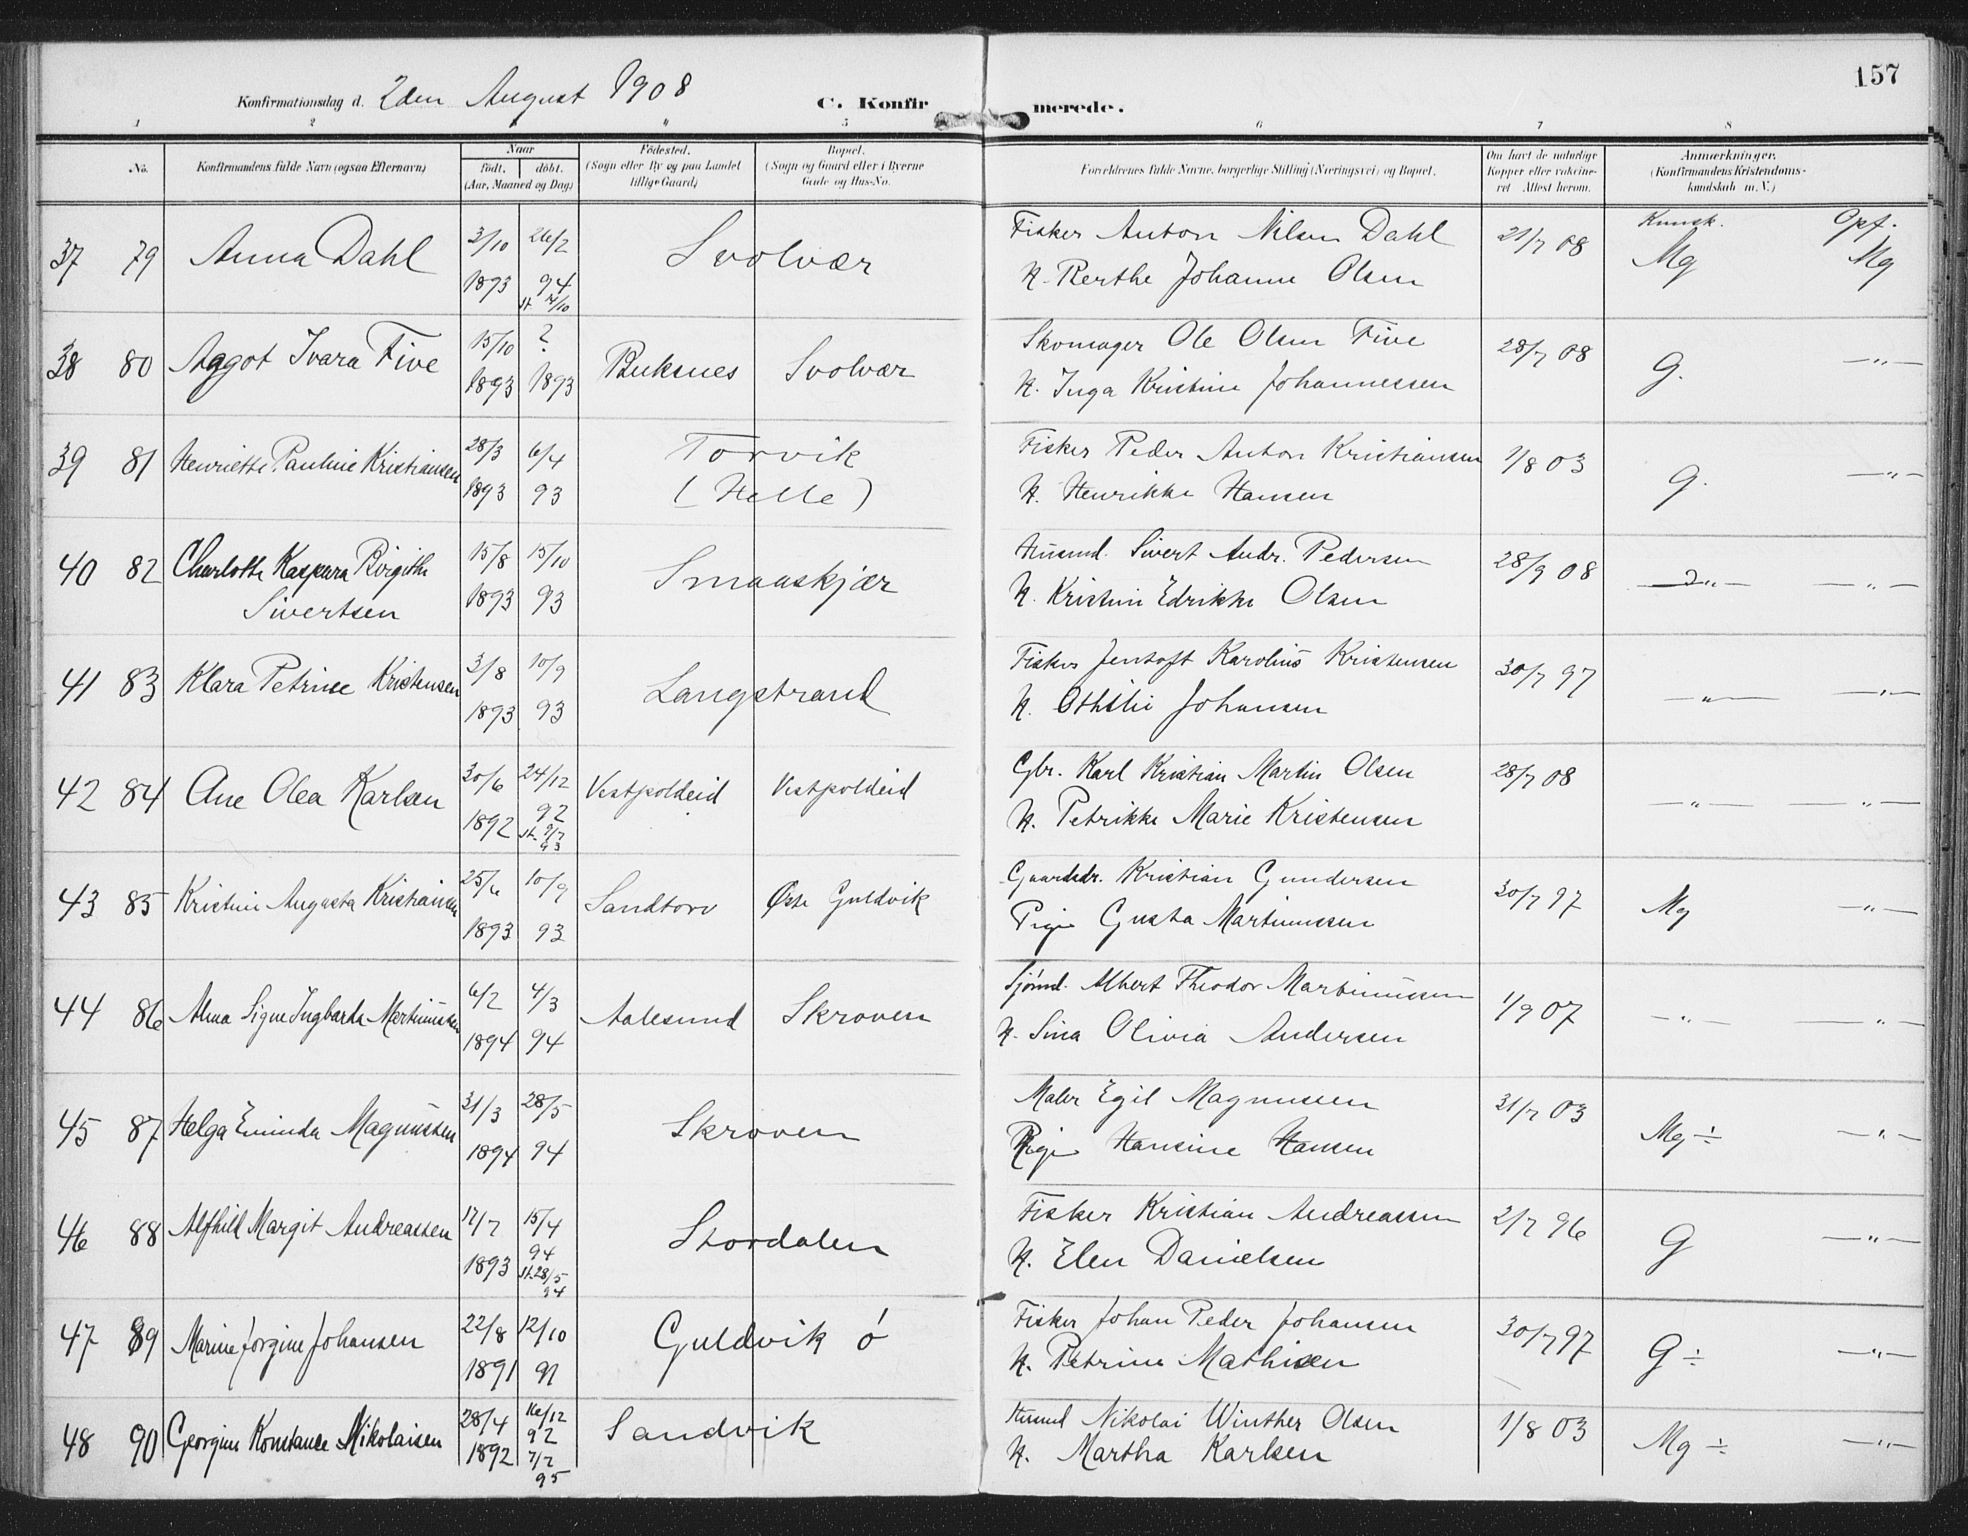 157
Konfirmationsdag d. 2den August 1908
C. Konfirmerede.
1 2 3 4 5 6 7 8
No. Konfirmandens fulde Navn (ogsaa Efternavn) Naar født. døbt. (Aar, Maaned og Dag) Fødested. (Sogn eller By og paa Landet tillige Gaard) Bopæl. (Sogn og Gaard eller i Byerne Gade og Hus-No. Forældrenes fulde Navne, borgerlige Stilling (Næringsvei) og Bopæl. Om havt de naturlige Kopper eller vakcineret Attest herom. Anmærkninger. (Konfirmandens Kristendomskundskab m. V.)
Kunsk. Opf.
37 79 Anna Dahl 3/10 1893 26/2 94 Svolvær Fisker Anton Nilsen Dahl 21/7 08 Mg Mg
H. Berthe Johanne Olsen
38 80 Aagot Ivara Five 15/10 1893 ? 1893 Buksnes Svolvær Skomager Ole Olsen Five 28/7 08 G. —"—
H. Inga Kristine Johannessen
39 81 Henriette Pauline Kristiansen 28/3 1893 6/4 93 Torvik (Helle) Fisker Peder Anton Kristiansen 1/8 03 G. —"—
H. Henrikke Hansen
40 82 Charlotte Kaspara Birgithe Sivertsen 15/8 1893 15/10 93 Smaaskjær Husmd. Sivert Andr. Pedersen 28/9 08 —"— —"—
H. Kristine Edrikke Olsen
41 83 Klara Petrine Kristensen 3/8 1893 10/9 93 Langstrand Fisker Jentoft Karolius Kristensen 30/7 97 —"— —"—
H. Othilie Johansen
42 84 Ane Olea Karlsen 30/6 1892 24/12 92 st. 9/7 93 Vestpoldeid Vestpoldeid Gbr. Karl Kristian Martin Olsen 28/7 08 —"— —"—
H. Petrikke Marie Kristensen
43 85 Kristine Augusta Kristiansen 25/6 1893 10/9 93 Sandtorv Øst Guldvik Gaardbr. Kristian Gundersen 30/7 97 Mg —"—
Pige Gusta Martinussen
44 86 Alma Signe Ingbarta Martinussen 6/2 1894 4/3 94 Aalesund Skroven Sjømd. Albert Theodor Martinussen 1/9 07 —"— —"—
H. Sina Olivia Andersen
45 87 Helga Eminda Magnussen 31/3 1894 28/5 94 Skroven Maler Egil Magnussen 31/7 03 Mg ÷ —"—
Pige Hansine Hansen
46 88 Alfhild Margit Andreassen 17/7 1893 15/4 94 st. 28/5 94 Stordalen Fisker Kristian Andreassen 2/7 96 G —"—
H. Elen Danielsen
47 89 Marine Jorgine Johansen 22/8 1891 12/10 91 Guldvik ø Fisker Johan Peder Johansen 30/7 97 G ÷ —"—
H. Petrine Mathisen
48 90 Georgine Konstance Nikolaisen 28/4 1892 16/12 92 7/7 95 Sandvik Husmd Nikolai Winther Olsen 1/8 03 Mg ÷ —"—
H. Martha Karlsen